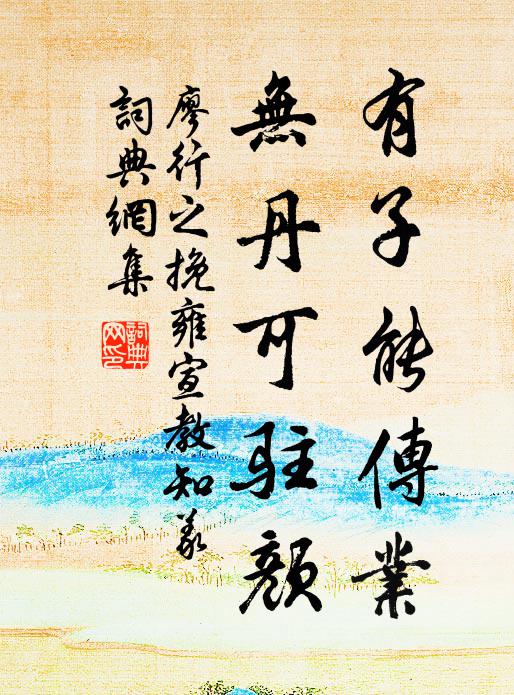 有子能傳業
無丹可駐顏
廖行之挽雍宣教知義
詞典網集
詞典
网印